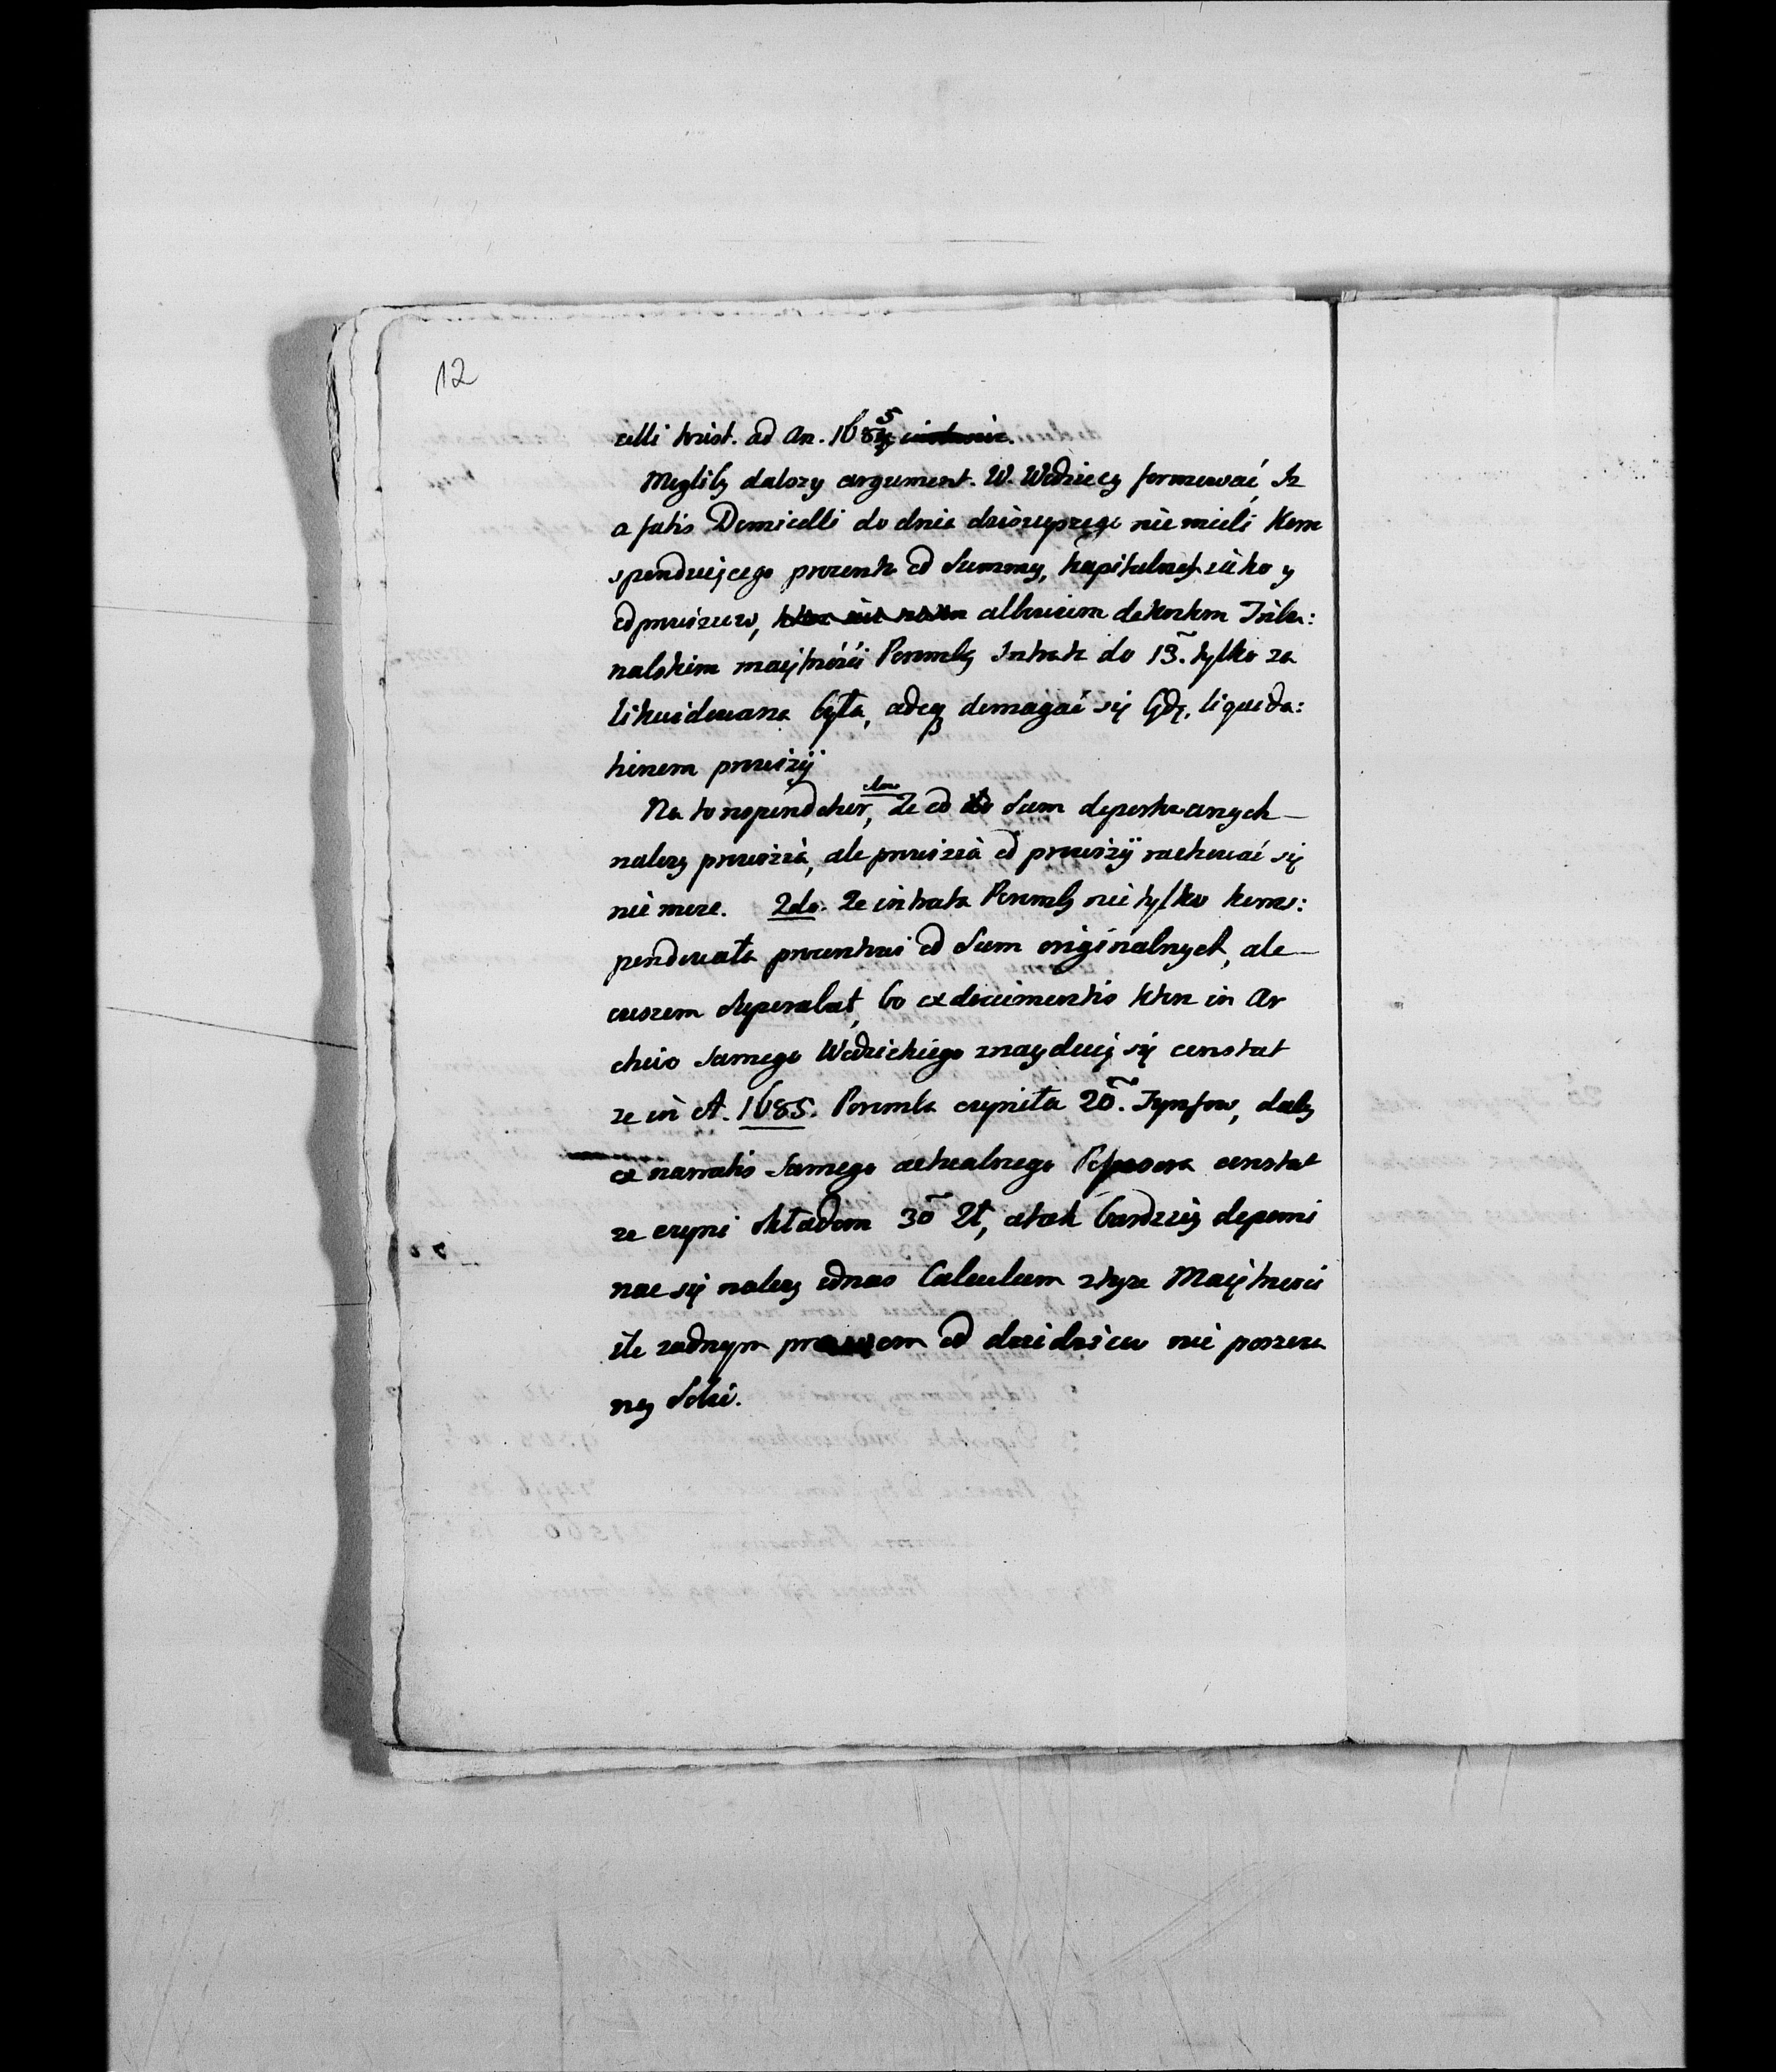 12
celli trist. ad An. 1685
Mogliby dalszy argument. W. Wodziccy formować, Iż
a fatis Domicelli do dnia dzisieyszego nie mieli Korre
sponduiącego procentu od Summy, kapitalney iako y
od prowizyow, dekretem Tribu:
nalskim maiętności Poremby Intrata do 13. tylko za
likwidowana była, adeoq domagać się będą, liquida:
tionem prowizÿ
Na to respondetur, Że od Sum deportowanych
należy prowizia, ale prowizia od prowizÿ rachować się
nie może. 2do. Że intrata Poremby nie tylko korres:
pondowała procentowi od Sum originalnych, ale
owszem superabat, bo ex documentis ktore in Ar
chivo Samego Wodzickiego znayduią się constat
że in A. 1685. Poremba czyniła 20. Tynfow, daley
ex narratis Samego actualnego Possesora constat
że czyni Składem 30 Zł, a tak bardziey
nac się należy ednas Calculum z teyże Maiętności
ile żadnym prawem od dziedzicow nie puszczo
ney